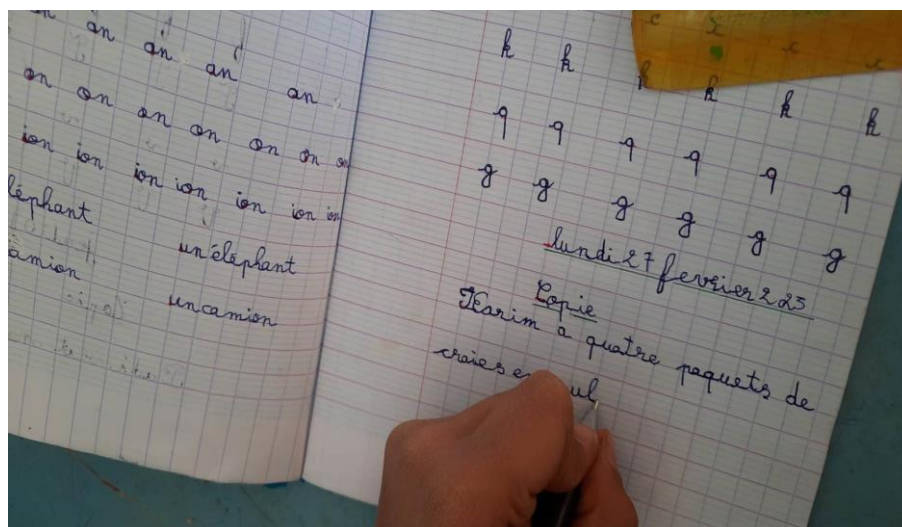 an an an an
on on on on on on on
ion ion ion ion ion ion ion
léphant un éléphant
camion un camion
k k k k k k
q q q q q q
g g g g g g
lundi 27 fevrier 2 23
Copie
Karim a quatre paquets de
craies e ul